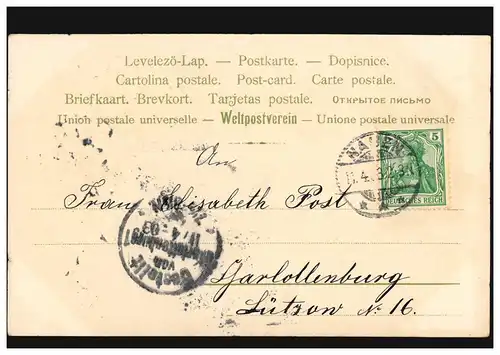 Levelező-Lap. — Postkarte. — Dopisnice.
Cartolina postale. Post-card. Carte postale.
Briefkaart. Brevkort. Tarjetas postale. Открытое письмо
Union postale universelle — Weltpostverein — Unione postale universale
An
Frau Elisabeth Post
Charlottenburg
Lützow No 16.
NAUEN
5
DEUTSCHES REICH
Bestellt
vom
11/4 03